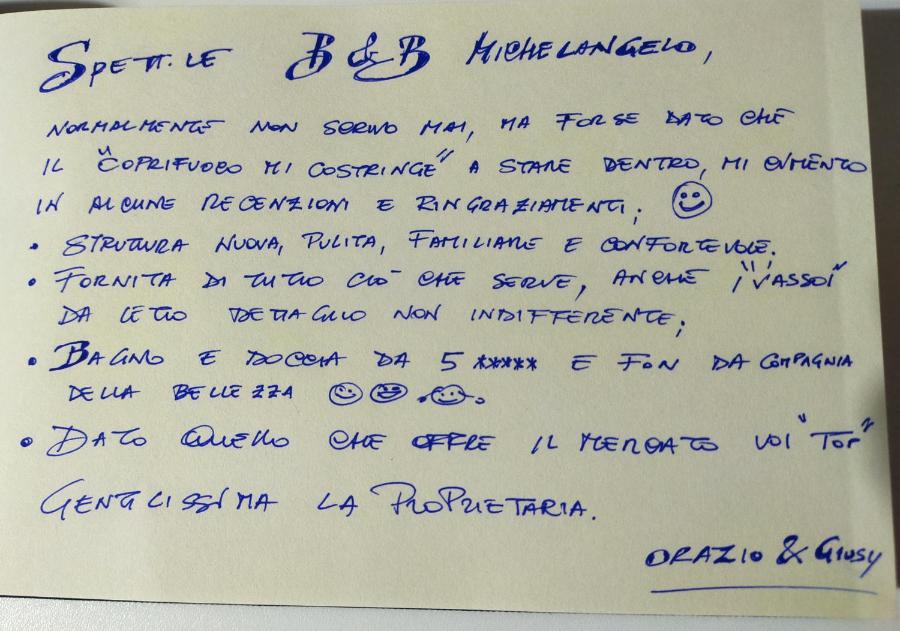 Spett.le B&B Michelangelo,
normalmente non scrivo mai, ma forse dato che
il "coprifuoco mi costringe" a stare dentro, mi cimento
in alcune recenzioni e ringraziamenti; 😊
• Strutura nuova, pulita, familiare e confortevole.
• Fornita di tutto ciò che serve, anche i "vassoi"
da letto dettaglio non indifferente;
• Bagno e doccia da 5 ***** e fon da compagnia
della bellezza
• Dato quello che offre il mercato voi "Top"
Gentilissima la proprietaria.
Orazio & Giusy